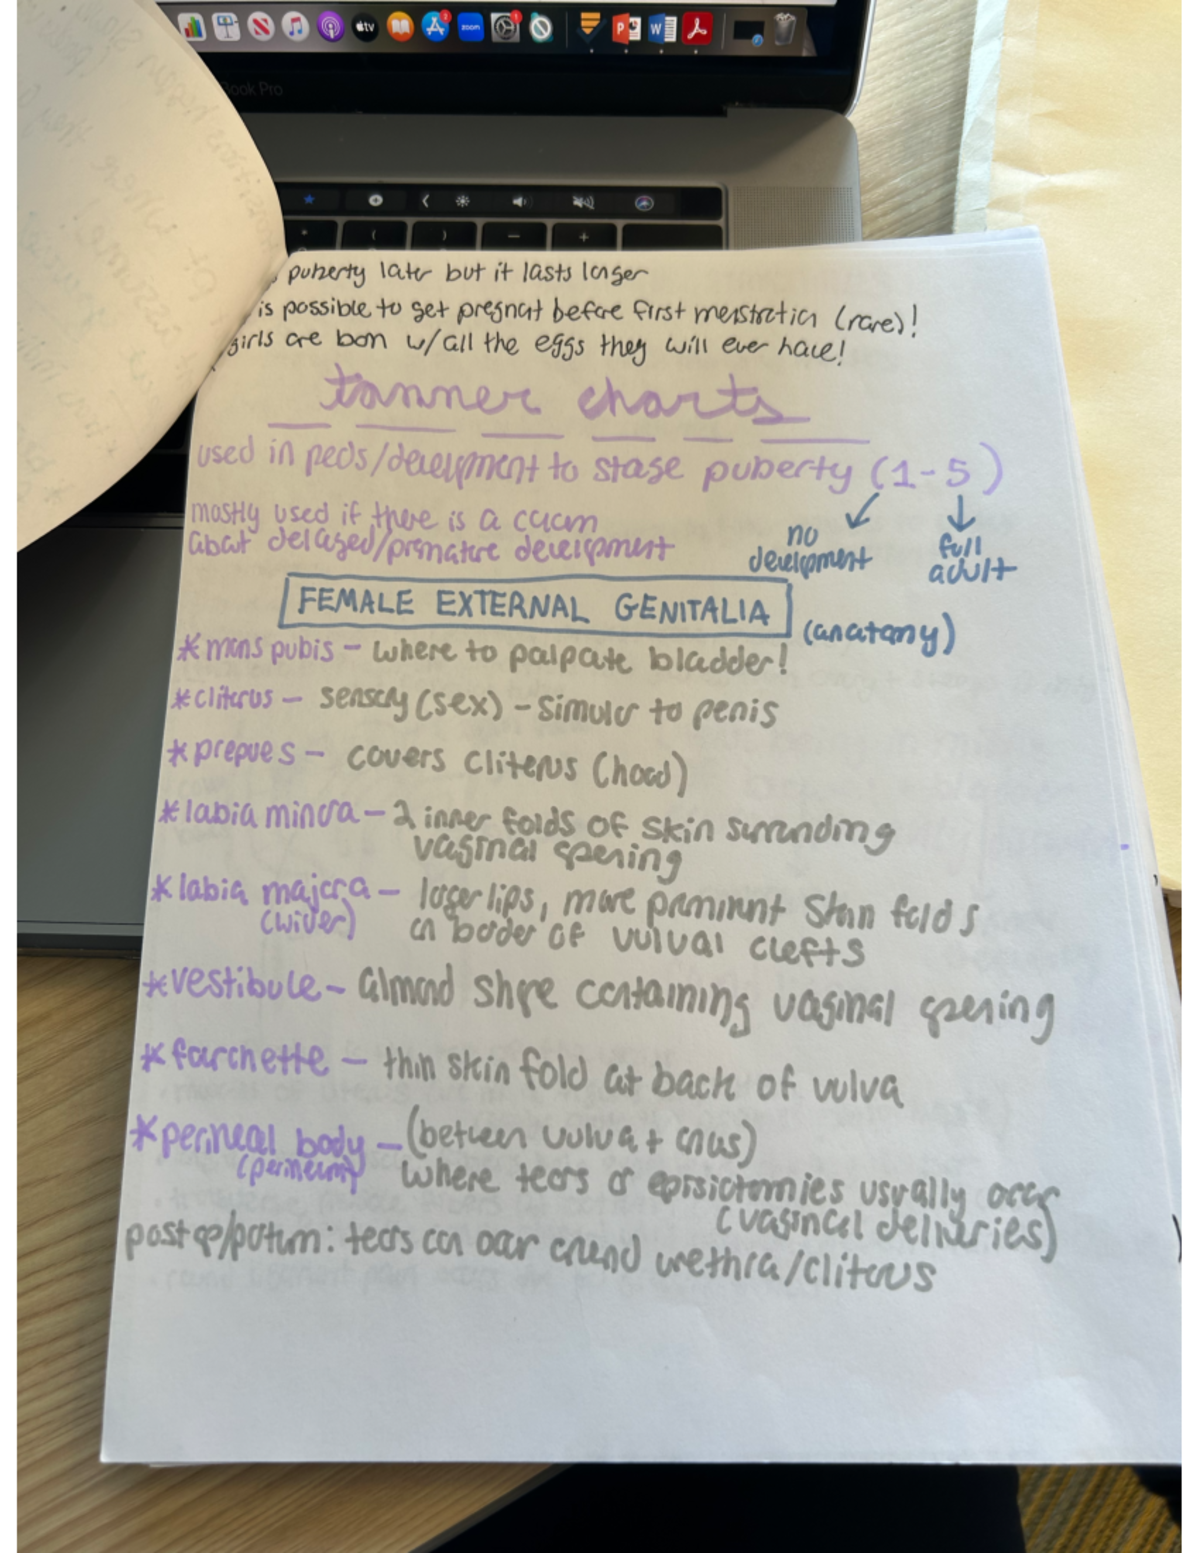 tv
zoom
P
W
Book Pro
puberty later but it lasts longer
is possible to get pregnant before first menstration (rare)!
girls are born w/all the eggs they will ever have!
tanner charts
used in peds/development to stage puberty (1-5)
mostly used if there is a concern
about delayed/premature development
no
development
full
adult
FEMALE EXTERNAL GENITALIA
(anatomy)
*mons pubis - where to palpate bladder!
*cliterus - sensory (sex) - similar to penis
*prepues - covers cliterus (hood)
*labia minora - 2 inner folds of skin surrounding
vaginal opening
*labia majora - larger lips, more prominent skin folds
(wider) on border of vulval clefts
*vestibule - almond shape containing vaginal opening
*forchette - thin skin fold at back of vulva
*perineal body - (between vulva + anus)
(perineum) where tears or episiotomies usually occur
(vaginal deliveries)
post op/partum: tears can occur around urethra/cliterus